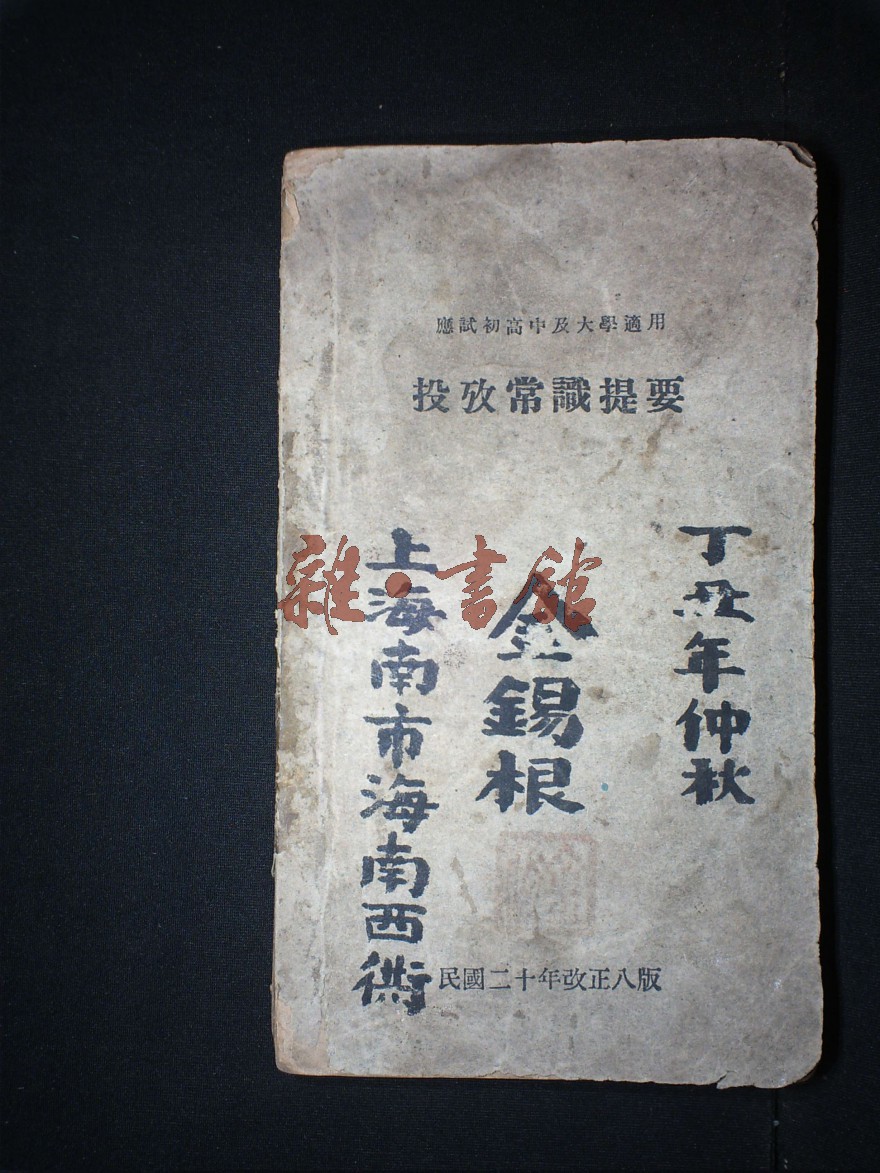 應試初高中及大學適用
投攷常識提要
丁丑年仲秋
金錫根
上海南市海南西衖
民國二十年改正八版
雜·書館